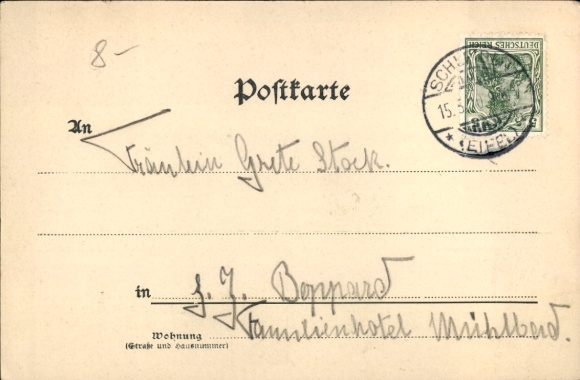 8-
DEUTSCHES REICH
5
15.5.
(EIFEL)
Postkarte
An
Fräulein Grete Stock.
in z. Z. Boppard
Familienhotel Mühlbad.
Wohnung
(Straße und Hausnummer)